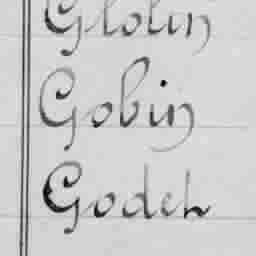 Glolin
Gobin
Godeh